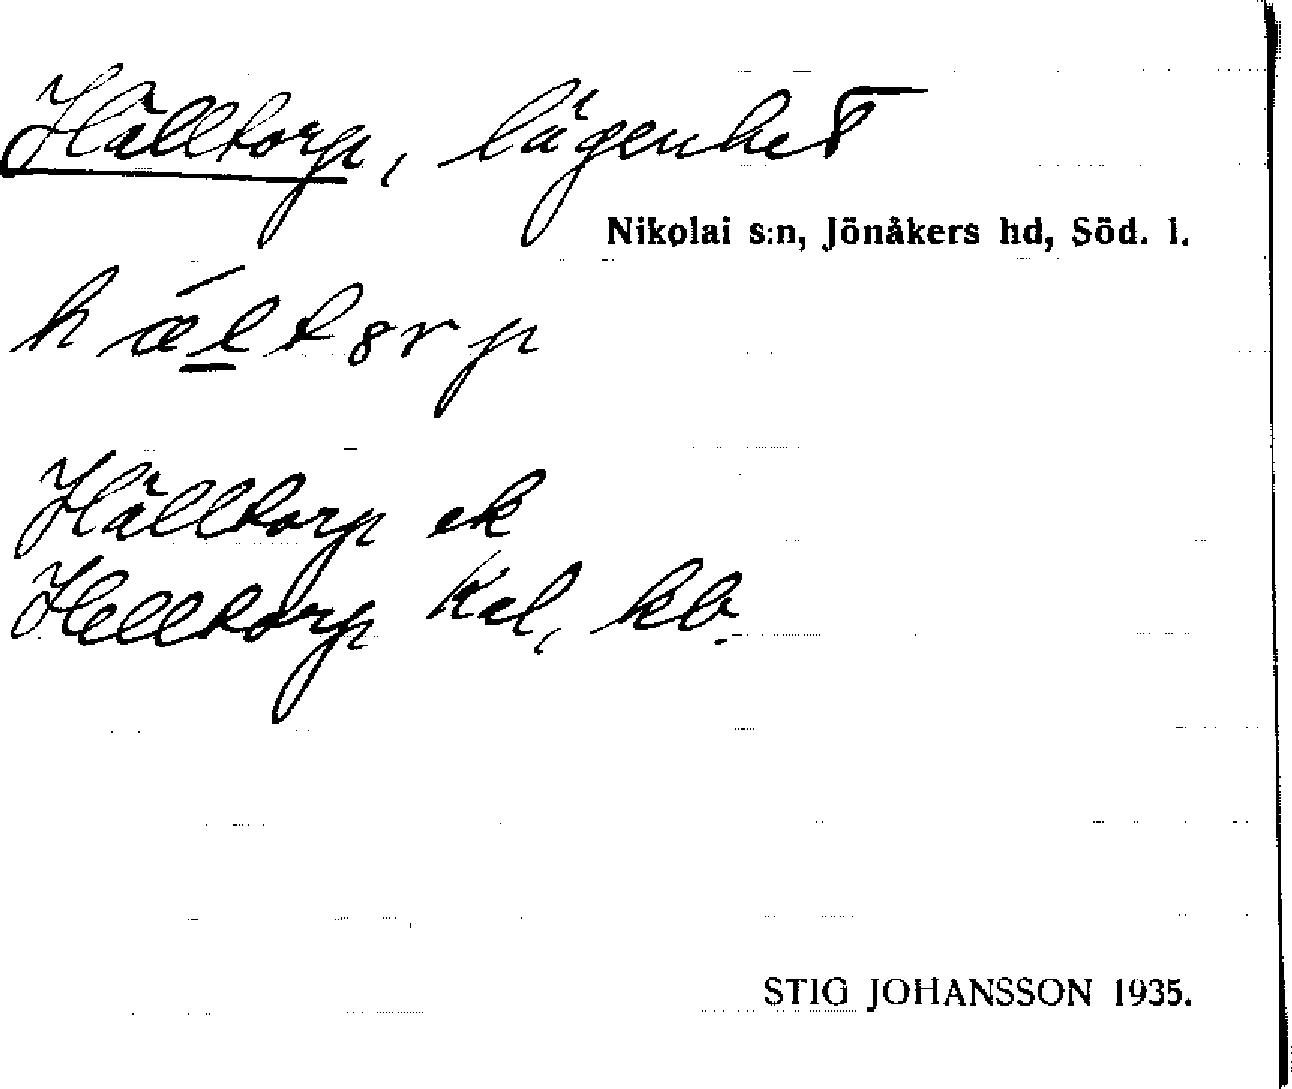 Hälltorp, lägenhet
Nikolai s:n, Jönåkers hd, Söd. l.
hǽltorp
Hälltorp ek
Helltorp Kal, kb.
STIG JOHANSSON 1935.